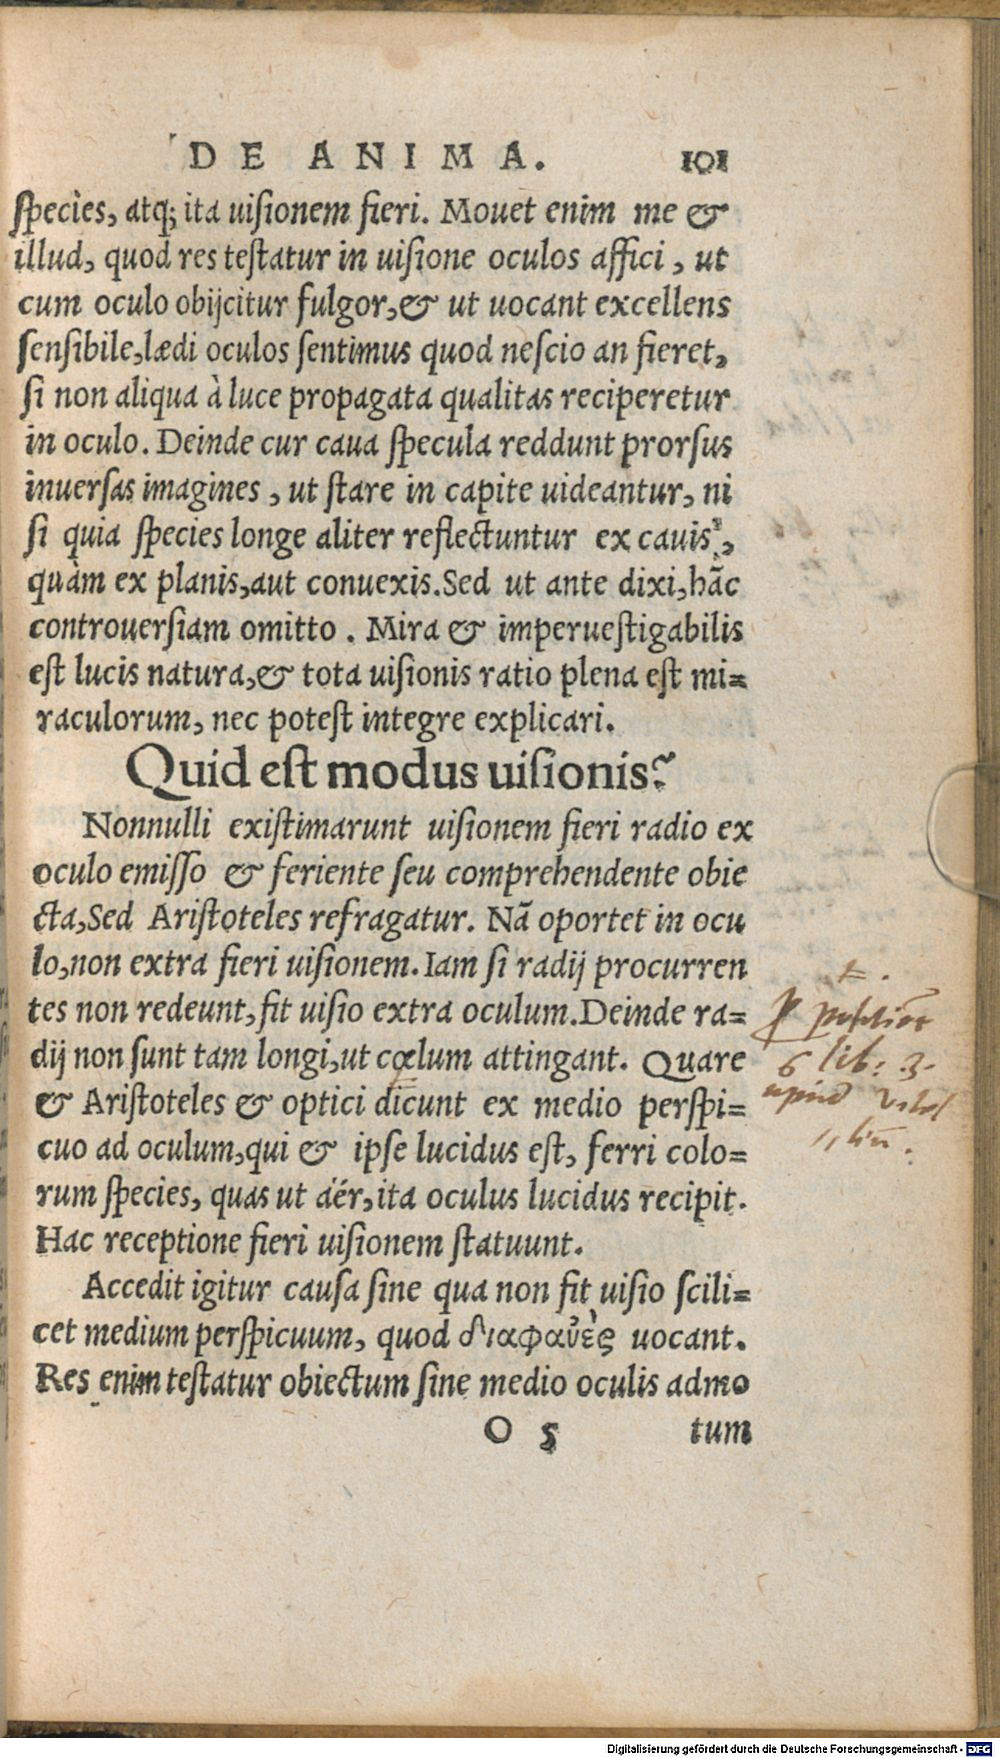 DE ANIMA. 101
ſpecies, atq; ita uiſionem fieri. Mouet enim me &
illud, quod res teſtatur in uiſione oculos affici, ut
cum oculo obijcitur fulgor, & ut uocant excellens
ſenſibile, lædi oculos ſentimus quod neſcio an fieret,
ſi non aliqua à luce propagata qualitas reciperetur
in oculo. Deinde cur caua ſpecula reddunt prorſus
inuerſas imagines, ut ſtare in capite uideantur, ni
ſi quia ſpecies longe aliter reflectuntur ex cauis,
quàm ex planis, aut conuexis. Sed ut ante dixi, hãc
controuerſiam omitto. Mira & imperueſtigabilis
eſt lucis natura, & tota uiſionis ratio plena eſt mi=
raculorum, nec poteſt integre explicari.
Quid eſt modus uiſionis?
Nonnulli exiſtimarunt uiſionem fieri radio ex
oculo emiſſo & feriente ſeu comprehendente obie
cta, Sed Ariſtoteles refragatur. Nã oportet in ocu
lo, non extra fieri uiſionem. Iam ſi radij procurren
tes non redeunt, fit uiſio extra oculum. Deinde ra=
dij non ſunt tam longi, ut cœlum attingant. Quare
& Ariſtoteles & optici dicunt ex medio perſpi=
cuo ad oculum, qui & ipſe lucidus eſt, ferri colo=
rum ſpecies, quas ut aër, ita oculus lucidus recipit.
Hac receptione fieri uiſionem ſtatuunt.
Accedit igitur cauſa ſine qua non fit uiſio ſcili=
cet medium perſpicuum, quod διαφανὲς uocant.
Res enim teſtatur obiectum ſine medio oculis admo
O 5 tum
6 lib: 3.
Digitalisierung gefördert durch die Deutsche Forschungsgemeinschaft - DFG